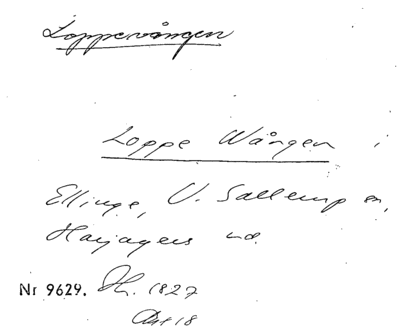 Loppevången
Loppe Wången i
Ellinge, V. Sallerup sn,
Harjagers hd.
Nr 9629. Th. 1827
Akt 18